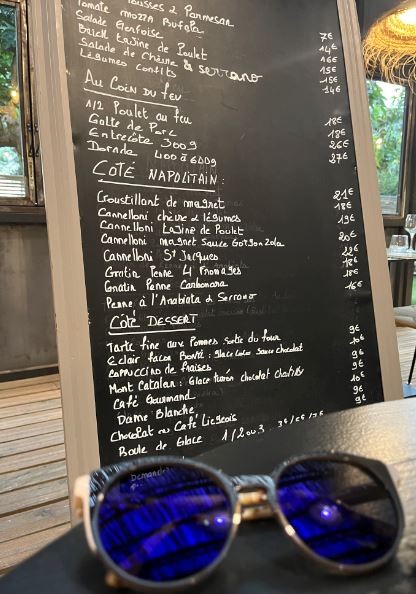 Mousses 2 Parmesan
Tomate mozza Bufala 7€
Salade Gersoise 14€
Brick Tajine de Poulet 16€
Salade de chèvre & serrano 15€
Légumes confits 15€
14€
Au Coin du feu
1/2 Poulet au feu 18€
Côte de Porc 18€
Entrecôte 300g 26€
Dorade 400 à 600g 27€
Coté Napolitain :
Croustillant de magret 21€
Cannelloni chèvre & légumes 18€
Cannelloni Tajine de Poulet 19€
Cannelloni magret Sauce Gorgonzola 20€
Cannelloni St Jacques 22€
Gratin Penne 4 Fromages 18€
Gratin Penne Carbonara 18€
Penne à l'Arabiata & Serrano 16€
Côté Dessert
Tarte fine aux Pommes sortie du four 9€
Eclair façon : Glace Sauce chocolat 10€
Cappuccino de fraises 9€
Mont Catalan : Glace chocolat chantilly 9€
Café Gourmand 10€
Dame Blanche 9€
Chocolat ou Café Liégeois 9€
Boule de Glace 1/2ou3. 3€/5€/7€
Demande